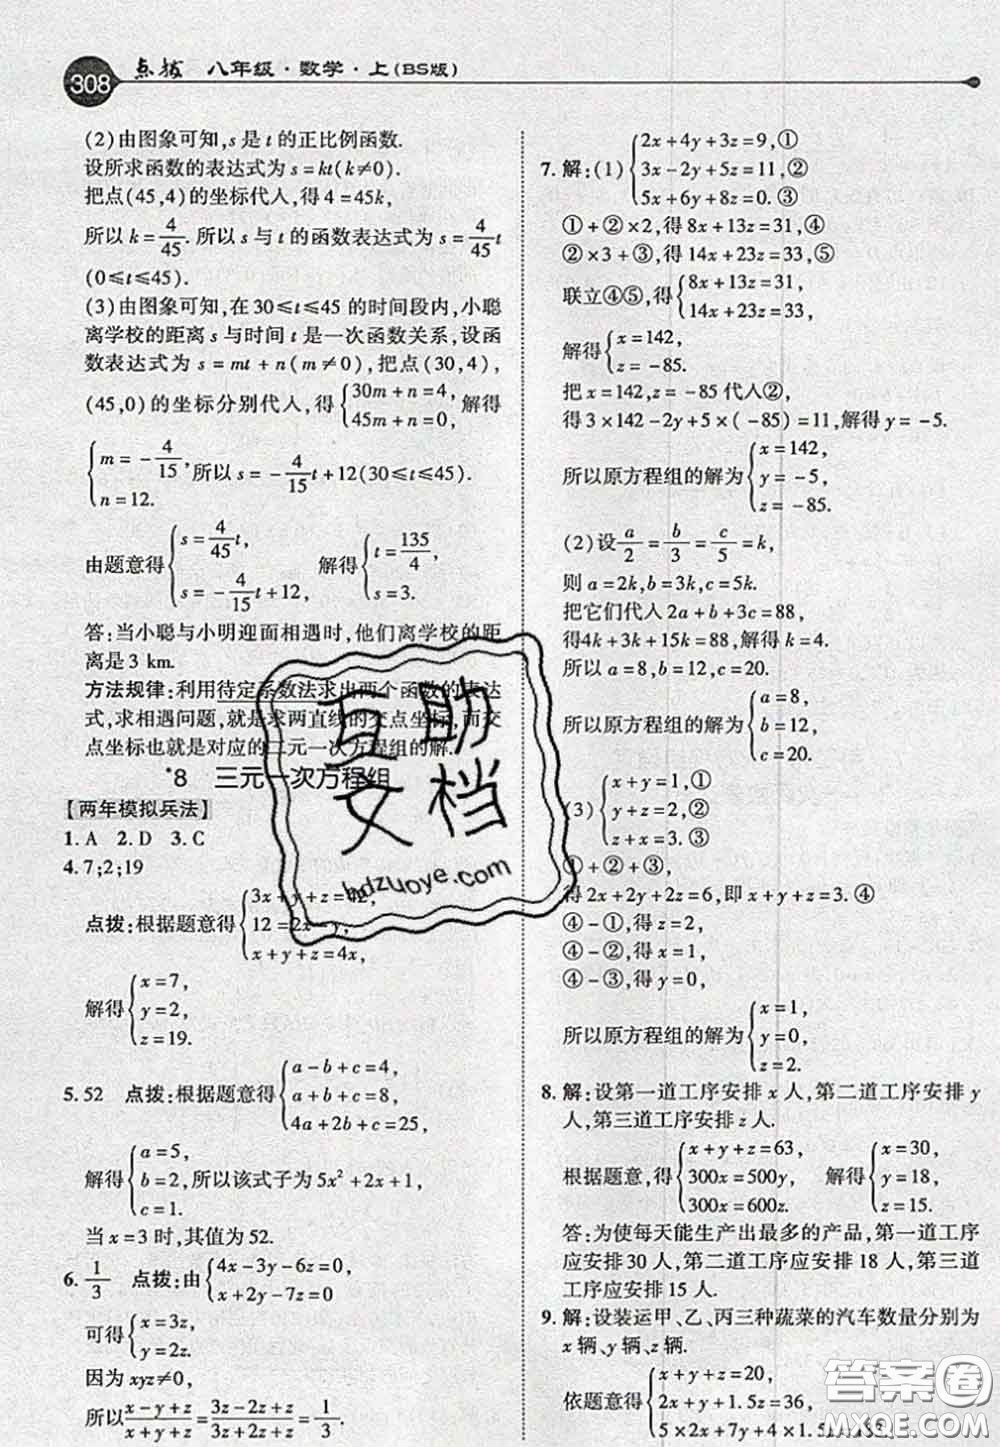 308 点拨 八年级·数学·上(BS版)
(2)由图象可知,s是t的正比例函数.
设所求函数的表达式为s=kt(k≠0).
把点(45,4)的坐标代人,得4=45k,
所以k=4/45.所以s与t的函数表达式为s=4/45t
(0≤t≤45).
(3)由图象可知,在30≤t≤45的时间段内,小聪
离学校的距离s与时间t是一次函数关系,设函
数表达式为s=mt+n(m≠0),把点(30,4),
(45,0)的坐标分别代人,得{30m+n=4, 45m+n=0,解得
{m=-4/15, n=12. 所以s=-4/15t+12(30≤t≤45).
由题意得{s=4/45t, s=-4/15t+12, 解得{t=135/4, s=3.
答:当小聪与小明迎面相遇时,他们离学校的距
离是3 km.
方法规律:利用待定系数法求出两个函数的表达
式,求相遇问题,就是求两直线的交点坐标,而交
点坐标也就是对应的二元一次方程组的解.
*8 三元一次方程组
【两年模拟兵法】
1.A 2.D 3.C
4.7;2;19
点拨:根据题意得{3x+y+z=42, 12=2x-y, x+y+z=4x,
解得{x=7, y=2, z=19.
5.52 点拨:根据题意得{a-b+c=4, a+b+c=8, 4a+2b+c=25,
解得{a=5, b=2, c=1. 所以该式子为5x²+2x+1,
当x=3时,其值为52.
6.1/3 点拨:由{4x-3y-6z=0, x+2y-7z=0,
可得{x=3z, y=2z.
因为xyz≠0,
所以(x-y+z)/(x+y-z)=(3z-2z+z)/(3z+2z+z)=1/3.
7.解:(1){2x+4y+3z=9,① 3x-2y+5z=11,② 5x+6y+8z=0.③
①+②×2,得8x+13z=31,④
②×3+③,得14x+23z=33,⑤
联立④⑤,得{8x+13z=31, 14x+23z=33,
解得{x=142, z=-85.
把x=142,z=-85代人②,
得3×142-2y+5×(-85)=11,解得y=-5.
所以原方程组的解为{x=142, y=-5, z=-85.
(2)设a/2=b/3=c/5=k,
则a=2k,b=3k,c=5k.
把它们代人2a+b+3c=88,
得4k+3k+15k=88,解得k=4.
所以a=8,b=12,c=20.
所以原方程组的解为{a=8, b=12, c=20.
(3){x+y=1,① y+z=2,② z+x=3.③
①+②+③,
得2x+2y+2z=6,即x+y+z=3.④
④-①,得z=2,
④-②,得x=1,
④-③,得y=0,
所以原方程组的解为{x=1, y=0, z=2.
8.解:设第一道工序安排x人,第二道工序安排y
人,第三道工序安排z人.
根据题意,得{x+y+z=63, 300x=500y, 300x=600z. 解得{x=30, y=18, z=15.
答:为使每天能生产出最多的产品,第一道工序
应安排30人,第二道工序应安排18人,第三道
工序应安排15人.
9.解:设装运甲、乙、丙三种蔬菜的汽车数量分别为
x辆、y辆、z辆.
依题意得{x+y+z=20, 2x+y+1.5z=36, 5×2x+7y+4×1.5z=183,
互助
文档
hdzuoye.com
答案圈
MXQE.COM